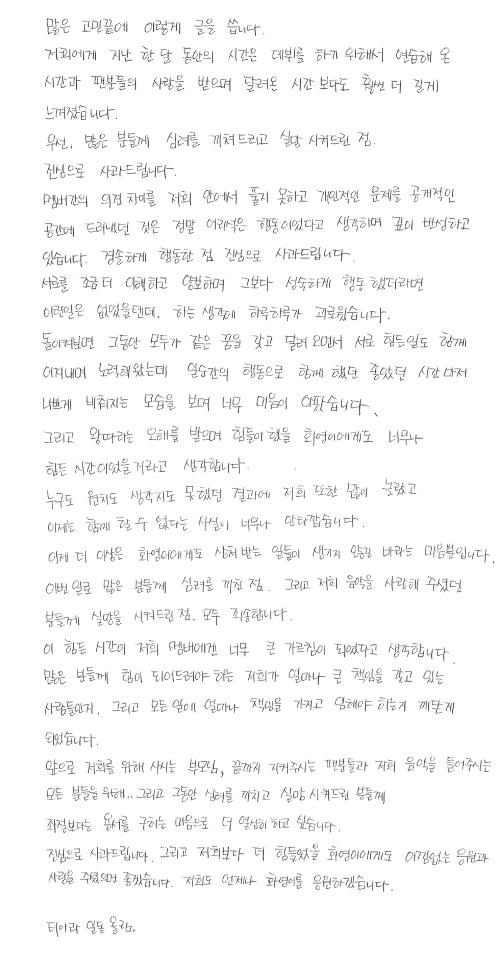 많은 고민끝에 이렇게 글을 씁니다.
저희에게 지난 한 달 동안의 시간은 데뷔를 하기 위해서 연습해 온
시간과 팬분들의 사랑을 받으며 달려온 시간보다도 훨씬 더 길게
느껴졌습니다.
우선, 많은 분들께 심려를 끼쳐드리고 실망 시켜드린 점.
진심으로 사과드립니다.
멤버간의 의견 차이를 저희 안에서 풀지 못하고 개인적인 문제를 공개적인
공간에 드러냈던 것은 정말 어리석은 행동이었다고 생각하며 깊이 반성하고
있습니다. 경솔하게 행동한 점 진심으로 사과드립니다.
서로를 조금 더 이해하고 양보하며 그보다 성숙하게 행동 했더라면
이런일은 없었을텐데. 하는 생각에 하루하루가 괴로웠습니다.
돌이켜보면 그동안 모두가 같은 꿈을 갖고 달려 오면서 서로 힘든일도 함께
이겨내며 노력해왔는데 일순간의 행동으로 함께 했던 좋았던 시간마저
나쁘게 비춰지는 모습을 보며 너무 마음이 아팠습니다.
그리고 왕따라는 오해를 받으며 힘들어 했을 화영이에게도 너무나
힘든 시간이었을거라고 생각합니다.
누구도 원치도 생각지도 못했던 결과에 저희 또한 많이 놀랐고
이제는 함께 할 수 없다는 사실이 너무나 안타깝습니다.
이제 더 이상은 화영이에게도 상처 받는 일들이 생기지 않길 바라는 마음뿐입니다.
이번 일로 많은 분들께 심려를 끼친 점. 그리고 저희 음악을 사랑해 주셨던
분들께 실망을 시켜드린 점. 모두 죄송합니다.
이 힘든 시간이 저희 멤버에겐 너무 큰 가르침이 되었다고 생각합니다.
많은 분들께 힘이 되어드려야 하는 저희가 얼마나 큰 책임을 갖고 있는
사람들인지, 그리고 모든 일에 얼마나 책임을 가지고 임해야 하는지 깨닫게
되었습니다.
앞으로 저희를 위해 사시는 부모님, 끝까지 지켜주시는 팬분들과 저희 음악을 들어주시는
모든 분들을 위해.. 그리고 그동안 심려를 끼치고 실망 시켜드린 분들께
좌절보다는 용서를 구하는 마음으로 더 열심히 하고 싶습니다.
진심으로 사과드립니다. 그리고 저희보다 더 힘들었을 화영이에게도 아낌없는 응원과
사랑을 주셨으면 좋겠습니다. 저희도 언제나 화영이를 응원하겠습니다.
티아라 일동 올림.